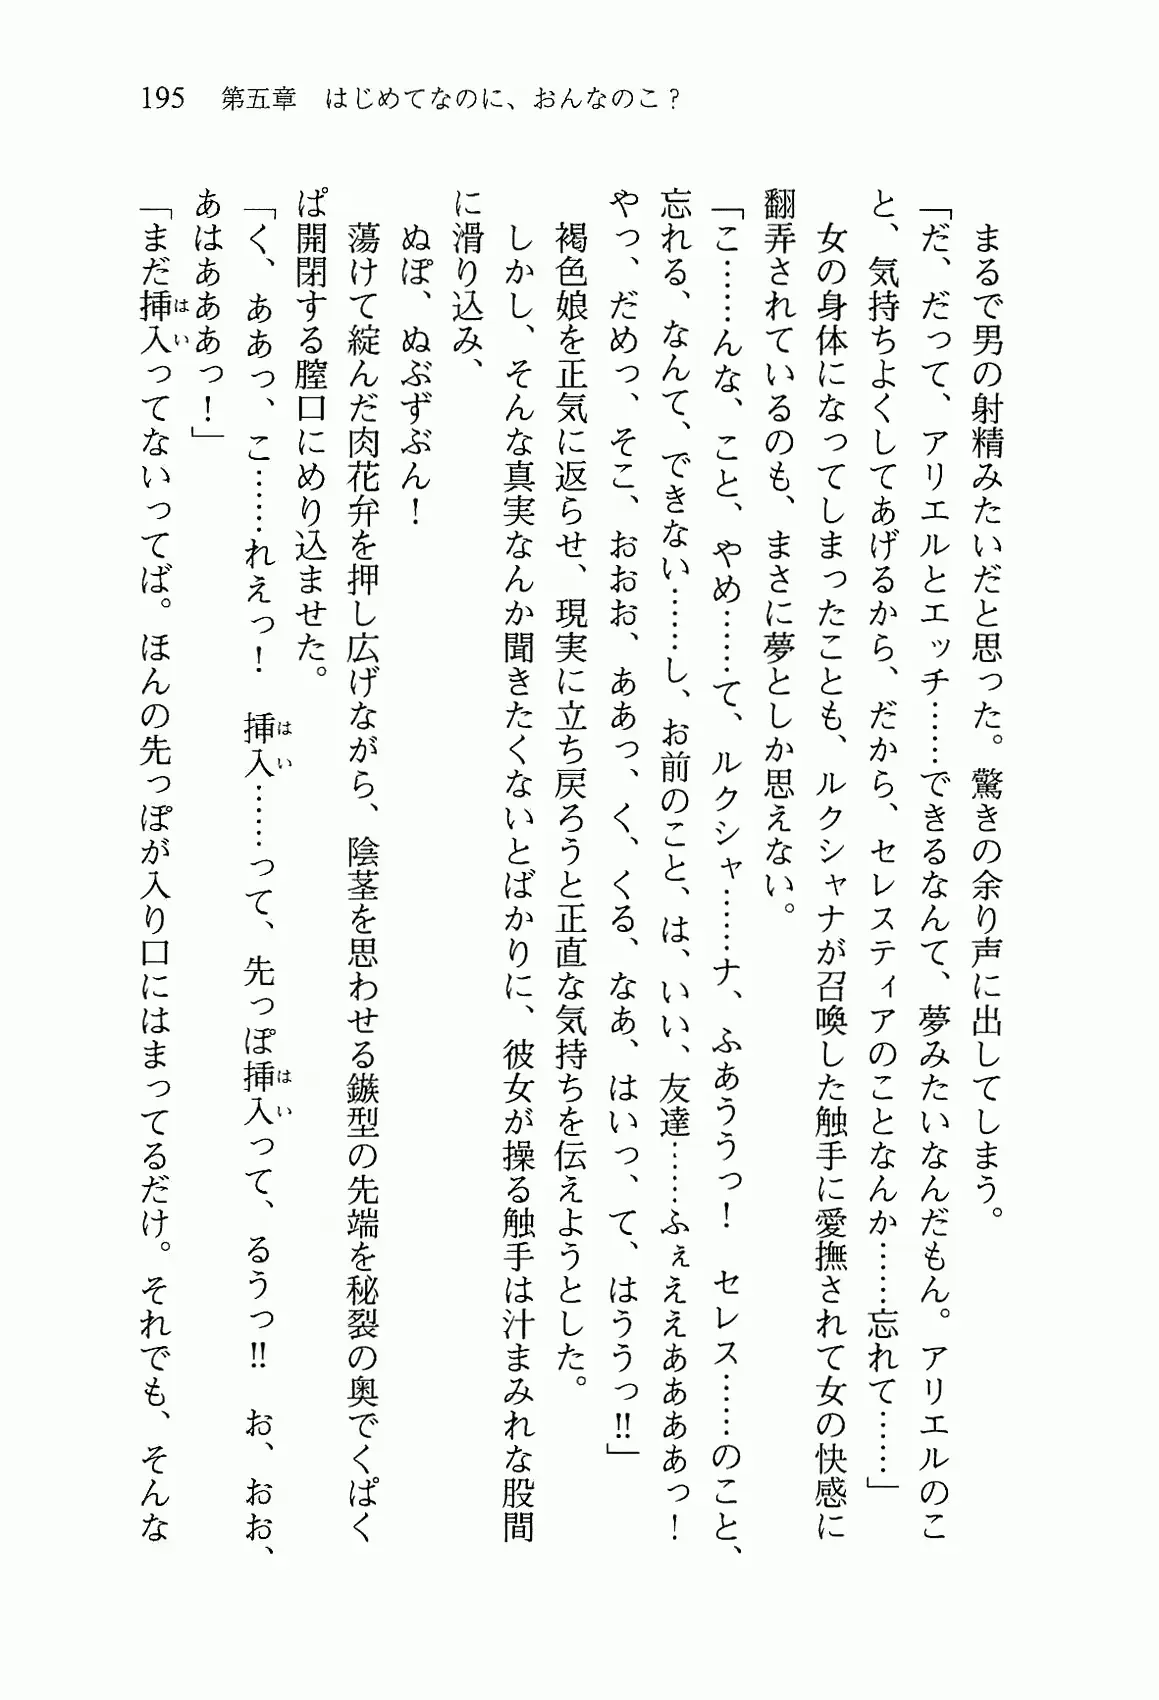 195　第五章　はじめてなのに、おんなのこ？
　まるで男の射精みたいだと思った。驚きの余り声に出してしまう。
「だ、だって、アリエルとエッチ……できるなんて、夢みたいなんだもん。アリエルのこ
と、気持ちよくしてあげるから、だから、セレスティアのことなんか……忘れて……」
　女の身体になってしまったことも、ルクシャナが召喚した触手に愛撫されて女の快感に
翻弄されているのも、まさに夢としか思えない。
「こ……んな、こと、やめ……て、ルクシャ……ナ、ふあううっ！　セレス……のこと、
忘れる、なんて、できない……し、お前のこと、は、いい、友達……ふぇええあああぁっ！
やっ、だめっ、そこ、おおお、ああっ、く、くる、なあ、はいっ、て、はううっ!!」
　褐色娘を正気に返らせ、現実に立ち戻ろうと正直な気持ちを伝えようとした。
　しかし、そんな真実なんか聞きたくないとばかりに、彼女が操る触手は汁まみれな股間
に滑り込み、
　ぬぽ、ぬぶずぶん！
　蕩けて綻んだ肉花弁を押し広げながら、陰茎を思わせる鏃型の先端を秘裂の奥でくぱく
ぱ開閉する膣口にめり込ませた。
「く、ああっ、こ……れえっ！　挿入……って、先っぽ挿入って、るうっ!!　お、おお、
あはあああっ！」
「まだ挿入ってないってば。ほんの先っぽが入り口にはまってるだけ。それでも、そんな